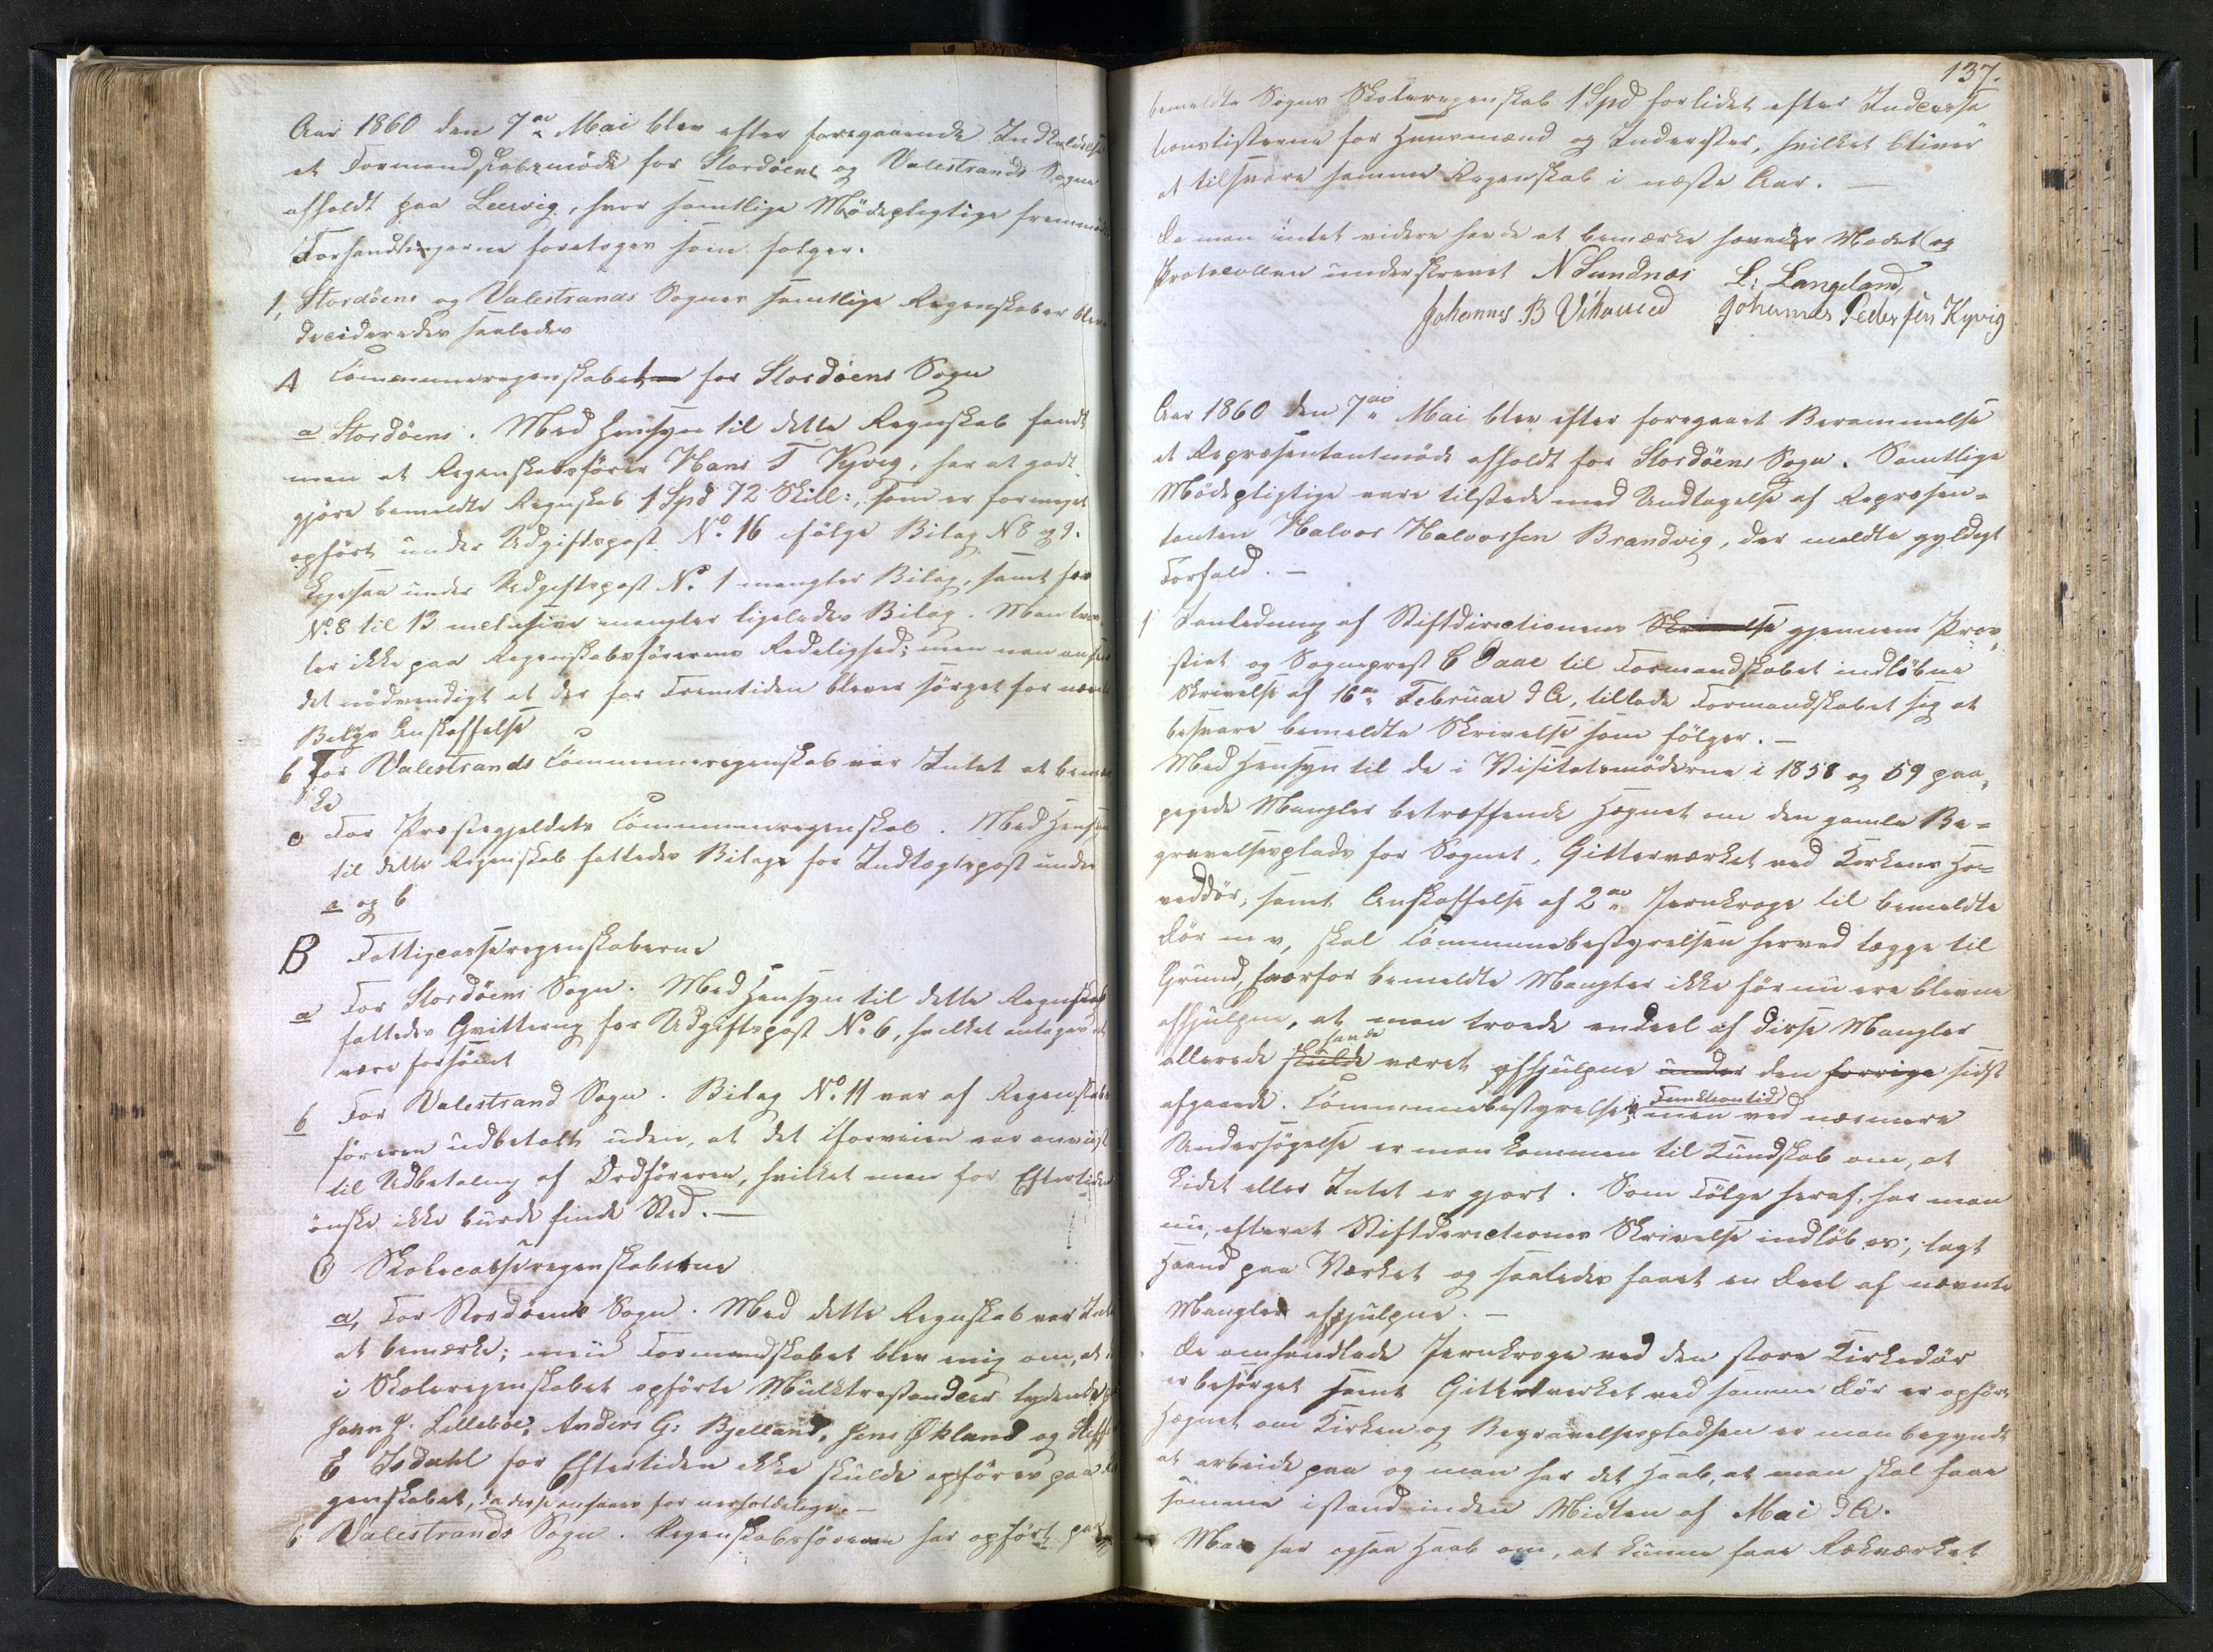 Aar 1860 den 7de Mai blev efter foregaaende Indkaldelse
et Formandskabsmöde for Stordöens og Valestrands Sogne
afholdt paa Leervig, hvor samtlige Mödepligtige fremmödte
Forhandlingerne foretoges som folger.
1, Stordöens og Valestrands Sognes samtlige Regnskaber blev
decideredes saaledes
A Communeregnskabet for Stordöens Sogn
a Stordöens. Med Hensyn til dette Regnskab fandt
man at Regnskabsförer Hans T Kyvig, har at godt
gjöre bemeldte Regnskab 1 Spd 72 Skill:, som er formeget
opfört under Udgiftspost No. 16 ifölge Bilag N 8 og 9.
Ligesaa under Udgiftspost No. 1 mangler Bilag, samt for
No. 8 til 13 inclusive mangler ligeledes Bilag. Man tviv
ler ikke paa Regnskabsförerens Redelighed; men man anser
det nödvendigt at der for Fremtiden bliver sörget for nævnte
Bilags Anskaffelse
b For Valestrands Communeregnskab var Intet at bemær
ke
c For Præstegjeldets Communeregnskab. Med Hensyn
til dette Regnskab fattedes Bilage for Indtægtspost under
a og b
B Fattigcasseregnskaberne
a For Stordöens Sogn. Med Hensyn til dette Regnskab
fattedes Qvittering for Udgiftspost No 6, hvilket antages at
være forsömt
b For Valestrand Sogn. Bilag No. 11 var af Regnskabs
föreren udbetalt uden, at det iforveien var anviist
til Udbetaling af Ordföreren, hvilket man for Eftertiden
önske ikke burde finde Sted. —
C Skolecasseregnskaberne
a, For Stordöens Sogn. Med dette Regnskab var Intet
at bemærke; meii Formandskabet blev enig om, at
i Skoleregnskabet opförte Mulktrestancer lydende
John J. Lilleböe, Anders G: Bjelland, Jens Økland og
E Isdahl for Eftertiden ikke skulde opföres paa Re
gnskabet, da disse ansaaes for uerholdelige. —
b Valestrands Sogn. Regnskabsföreren har opfört paa
137.
bemeldte Sogns Skoleregnskab 1 Spd forlidet efter
listerne for Huusmænd og Inderster, hvilket bliver
at tilsvare samme Regnskab i næste Aar. —
Da man intet videre havde at bemærke hævedes Modet og
Protocollen underskrevet N Sundnæs L: Langeland,
Johannes B Vihoued Johannes Pedersen Kyvig
Aar 1860 den 7de Mai blev efter foregaaet Berammelse
et Repræsentantmöde afholdt for Stordöens Sogn. Samtlige
Mödepligtige vare tilstede med Undtagelse af Repræsen=
tanten Halvor Halvorsen Brandvig, der meldte gyldigt
Forfald. —
1 I anledning af Stiftdirectionens Skrivelse gjennem Prov
stiet og Sogneprest C Daae til Formandskabet indlöbne
Skrivelse af 16de Februar d A, tillade Formandskabet sig at
besvare bemeldte Skrivelse som fölger. —
Med Hensyn til de i Visitatsmöderne i 1858 og 59 paa
pegede Mangler betræffende Hegnet om den gamle Be=
gravelsesplads for Sognet, Gitterværket ved Kirkens Ho=
veddör, samt Anskaffelse af 2de Jernkroge til bemeldte
Dör m v, skal Communebestyrelsen herved lægge til
Grund, hvorfor bemeldte Mangler ikke för nu ere blevne
afhjulpne, at man troede endeel af disse Mangler
allerede skulde havde været afhjulpne under den forrige sidst
afgaaede. Communebestyrelses Funktionstid men ved nærmere
Undersögelse er man kommen til Kundskab om, at
Lidet eller Intet er gjort. Som Fölge heraf, har man
nu, efterat Stiftdirectionens Skrivelse indlöb os, lagt
Haand paa Værket og saaledes faaet en Deel af nævnte
Mangler afhjulpne. —
De omhandlede Jernkroge ved den store Kirkedör
er besörget samt Gitterverket ved samme Dör er opfört
Hegnet om Kirken og Begravelsespladsen er man begyndt
at arbeide paa og man har det Haab, at man skal faae
samme istand inden Midten af Mai d A.
Man har ogsaa Haab om, at kunne faae Rekværket